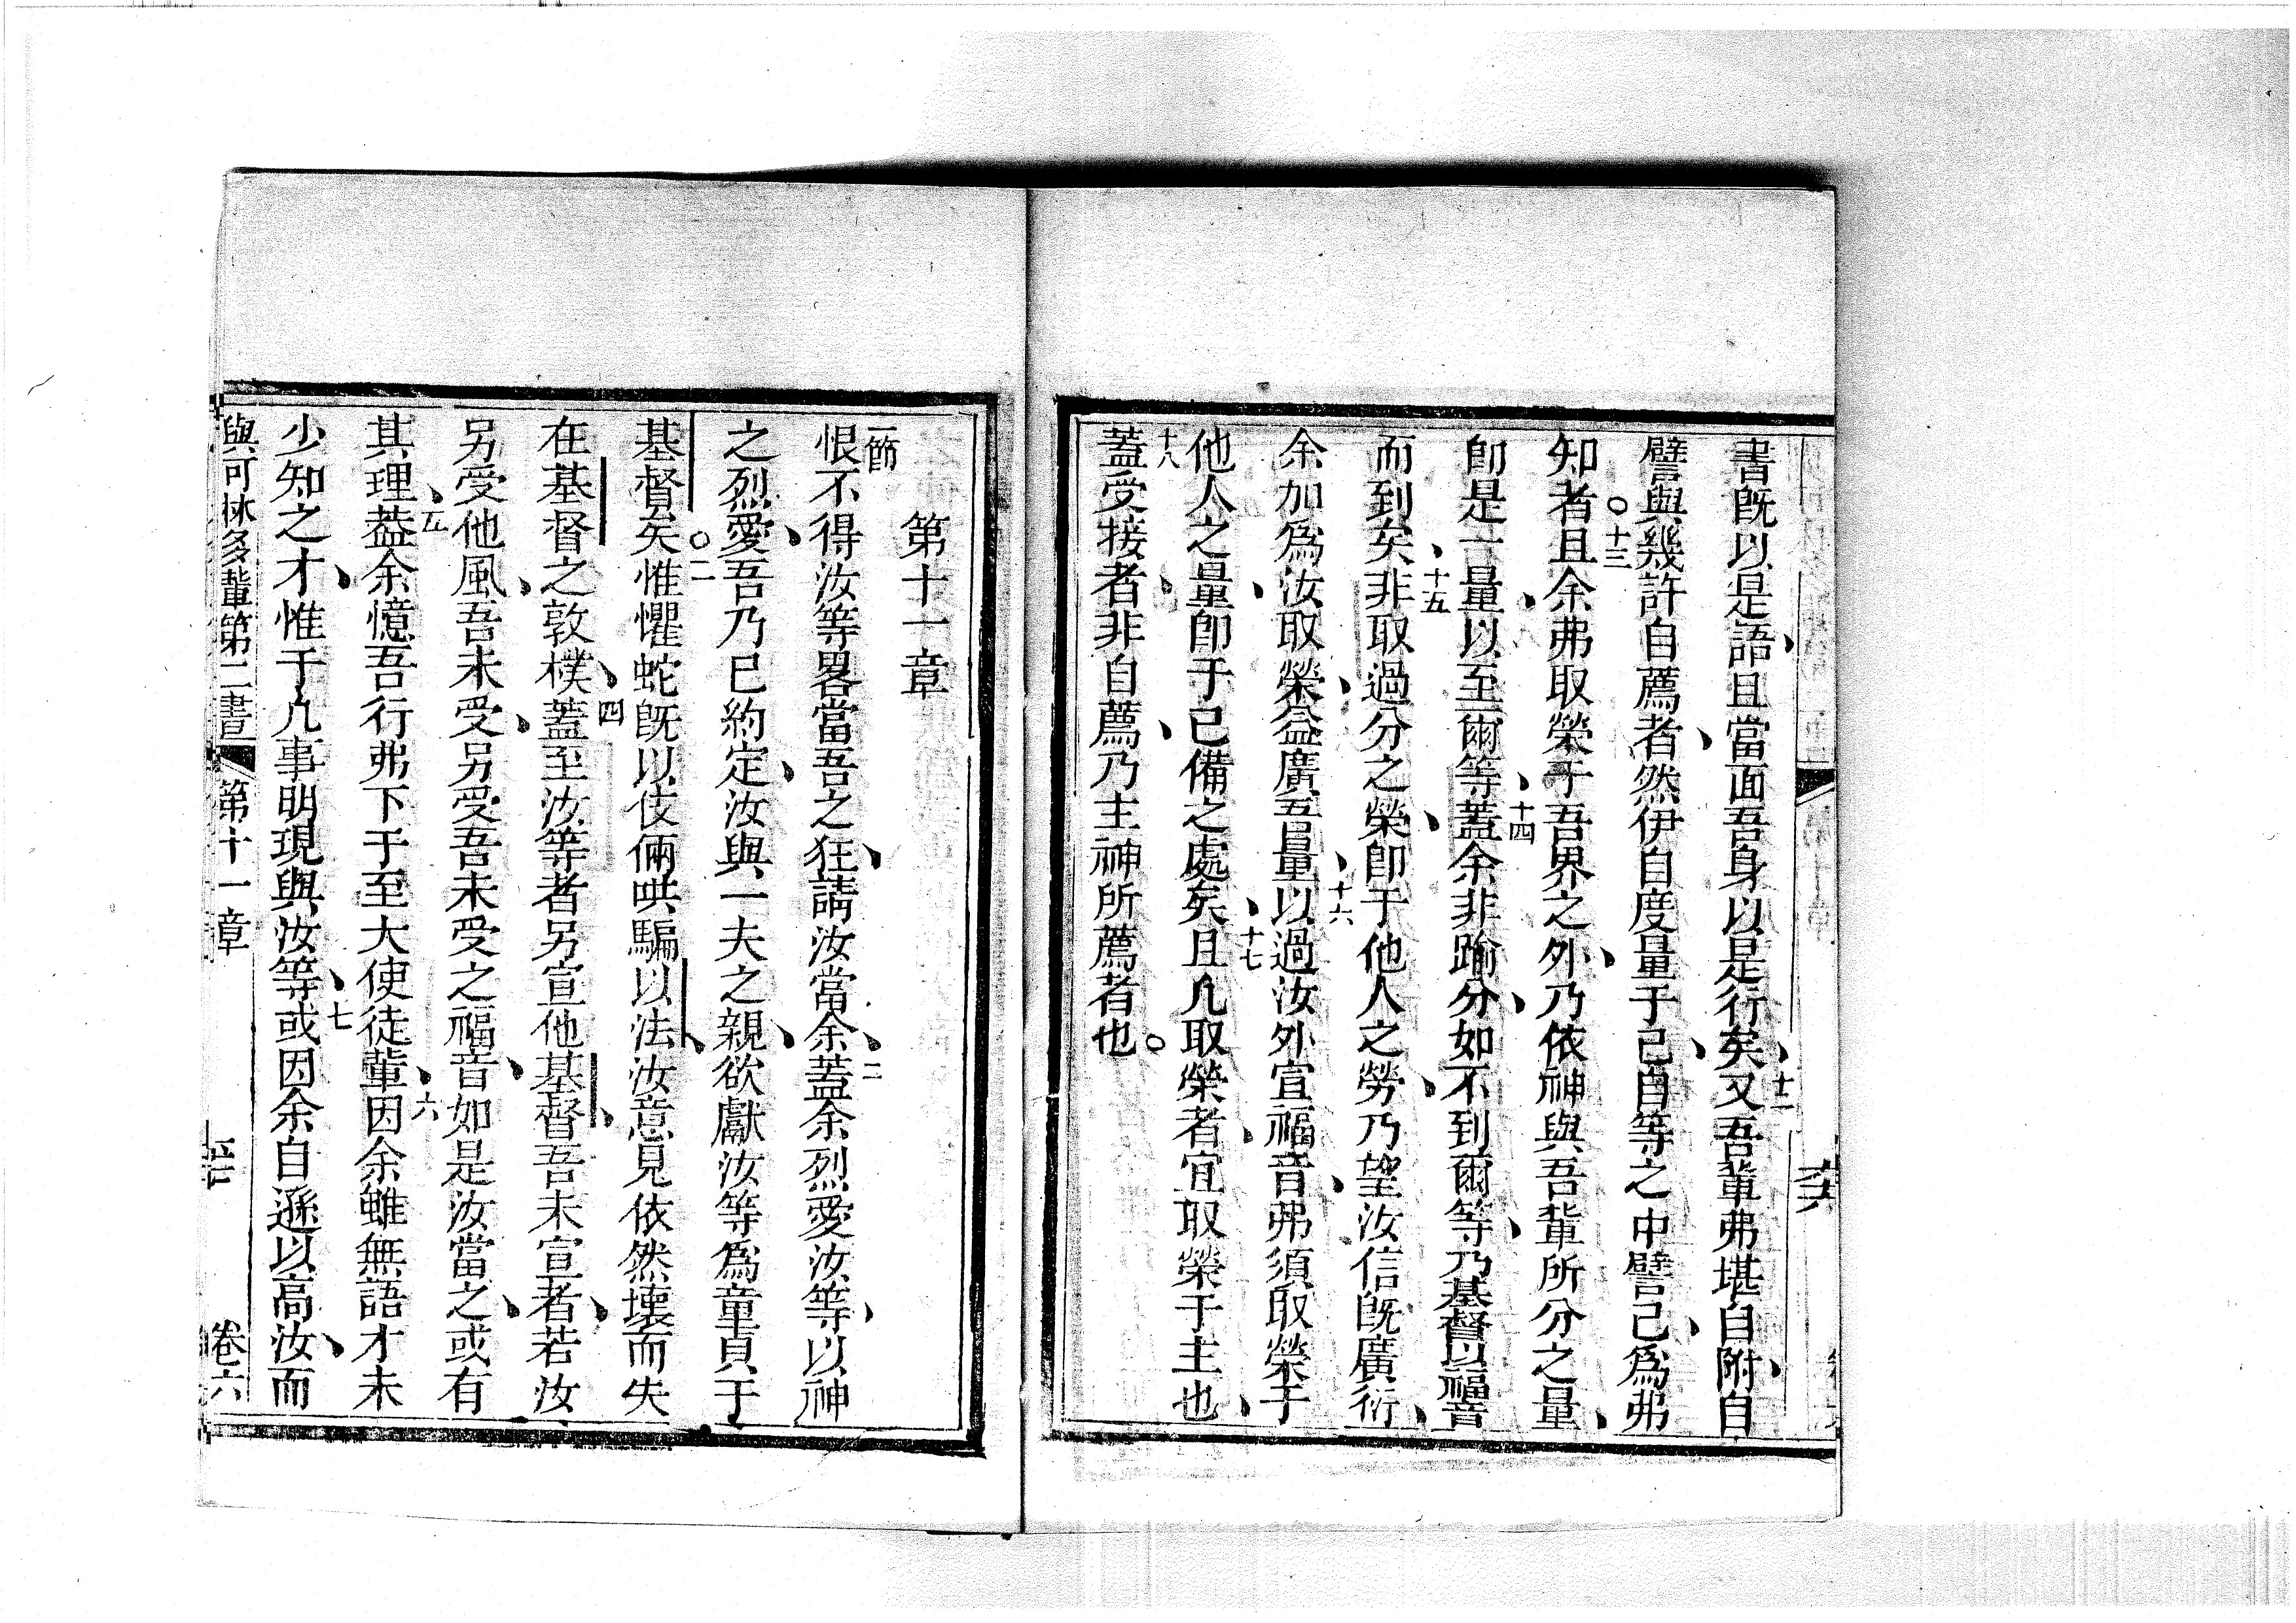 書既以是語且當面吾身以是行矣十二又吾輩弗堪自附自
譬與幾許自薦者然伊自度量于己自等之中譬己為弗
知者十三且余弗取榮于吾界之外乃依神與吾輩所分之量
即是一量以至爾等十四蓋余非踰分如不到爾等乃基督以福音
而到矣十五非取過分之榮即于他人之勞乃望汝信既廣衍
余加為汝取榮益廣吾量十六以過汝外宣福音弗須取榮于
他人之量即于己備之處矣十七且凢取榮者宜取榮于主也
十八蓋受接者非自薦乃主神所薦者也
第十一章
一節恨不得汝等畧當吾之狂請汝當余二蓋余烈愛汝等以神
之烈愛吾乃已約定汝與一夫之親欲獻汝等為童貞于
基督矣三惟懼蛇既以伎倆哄騙以法汝意見依然壞而失
在基督之敦樸四蓋至汝等者另宣他基督吾未宣者若汝
另受他風吾未受另受吾未受之福音如是汝當之或有
其理五葢余憶吾行弗下于至大使徒輩六因余雖無語才未
少知之才惟于凢事明現與汝等七或因余自遜以高汝而
與可林多輩第二書 第十一章 卷六